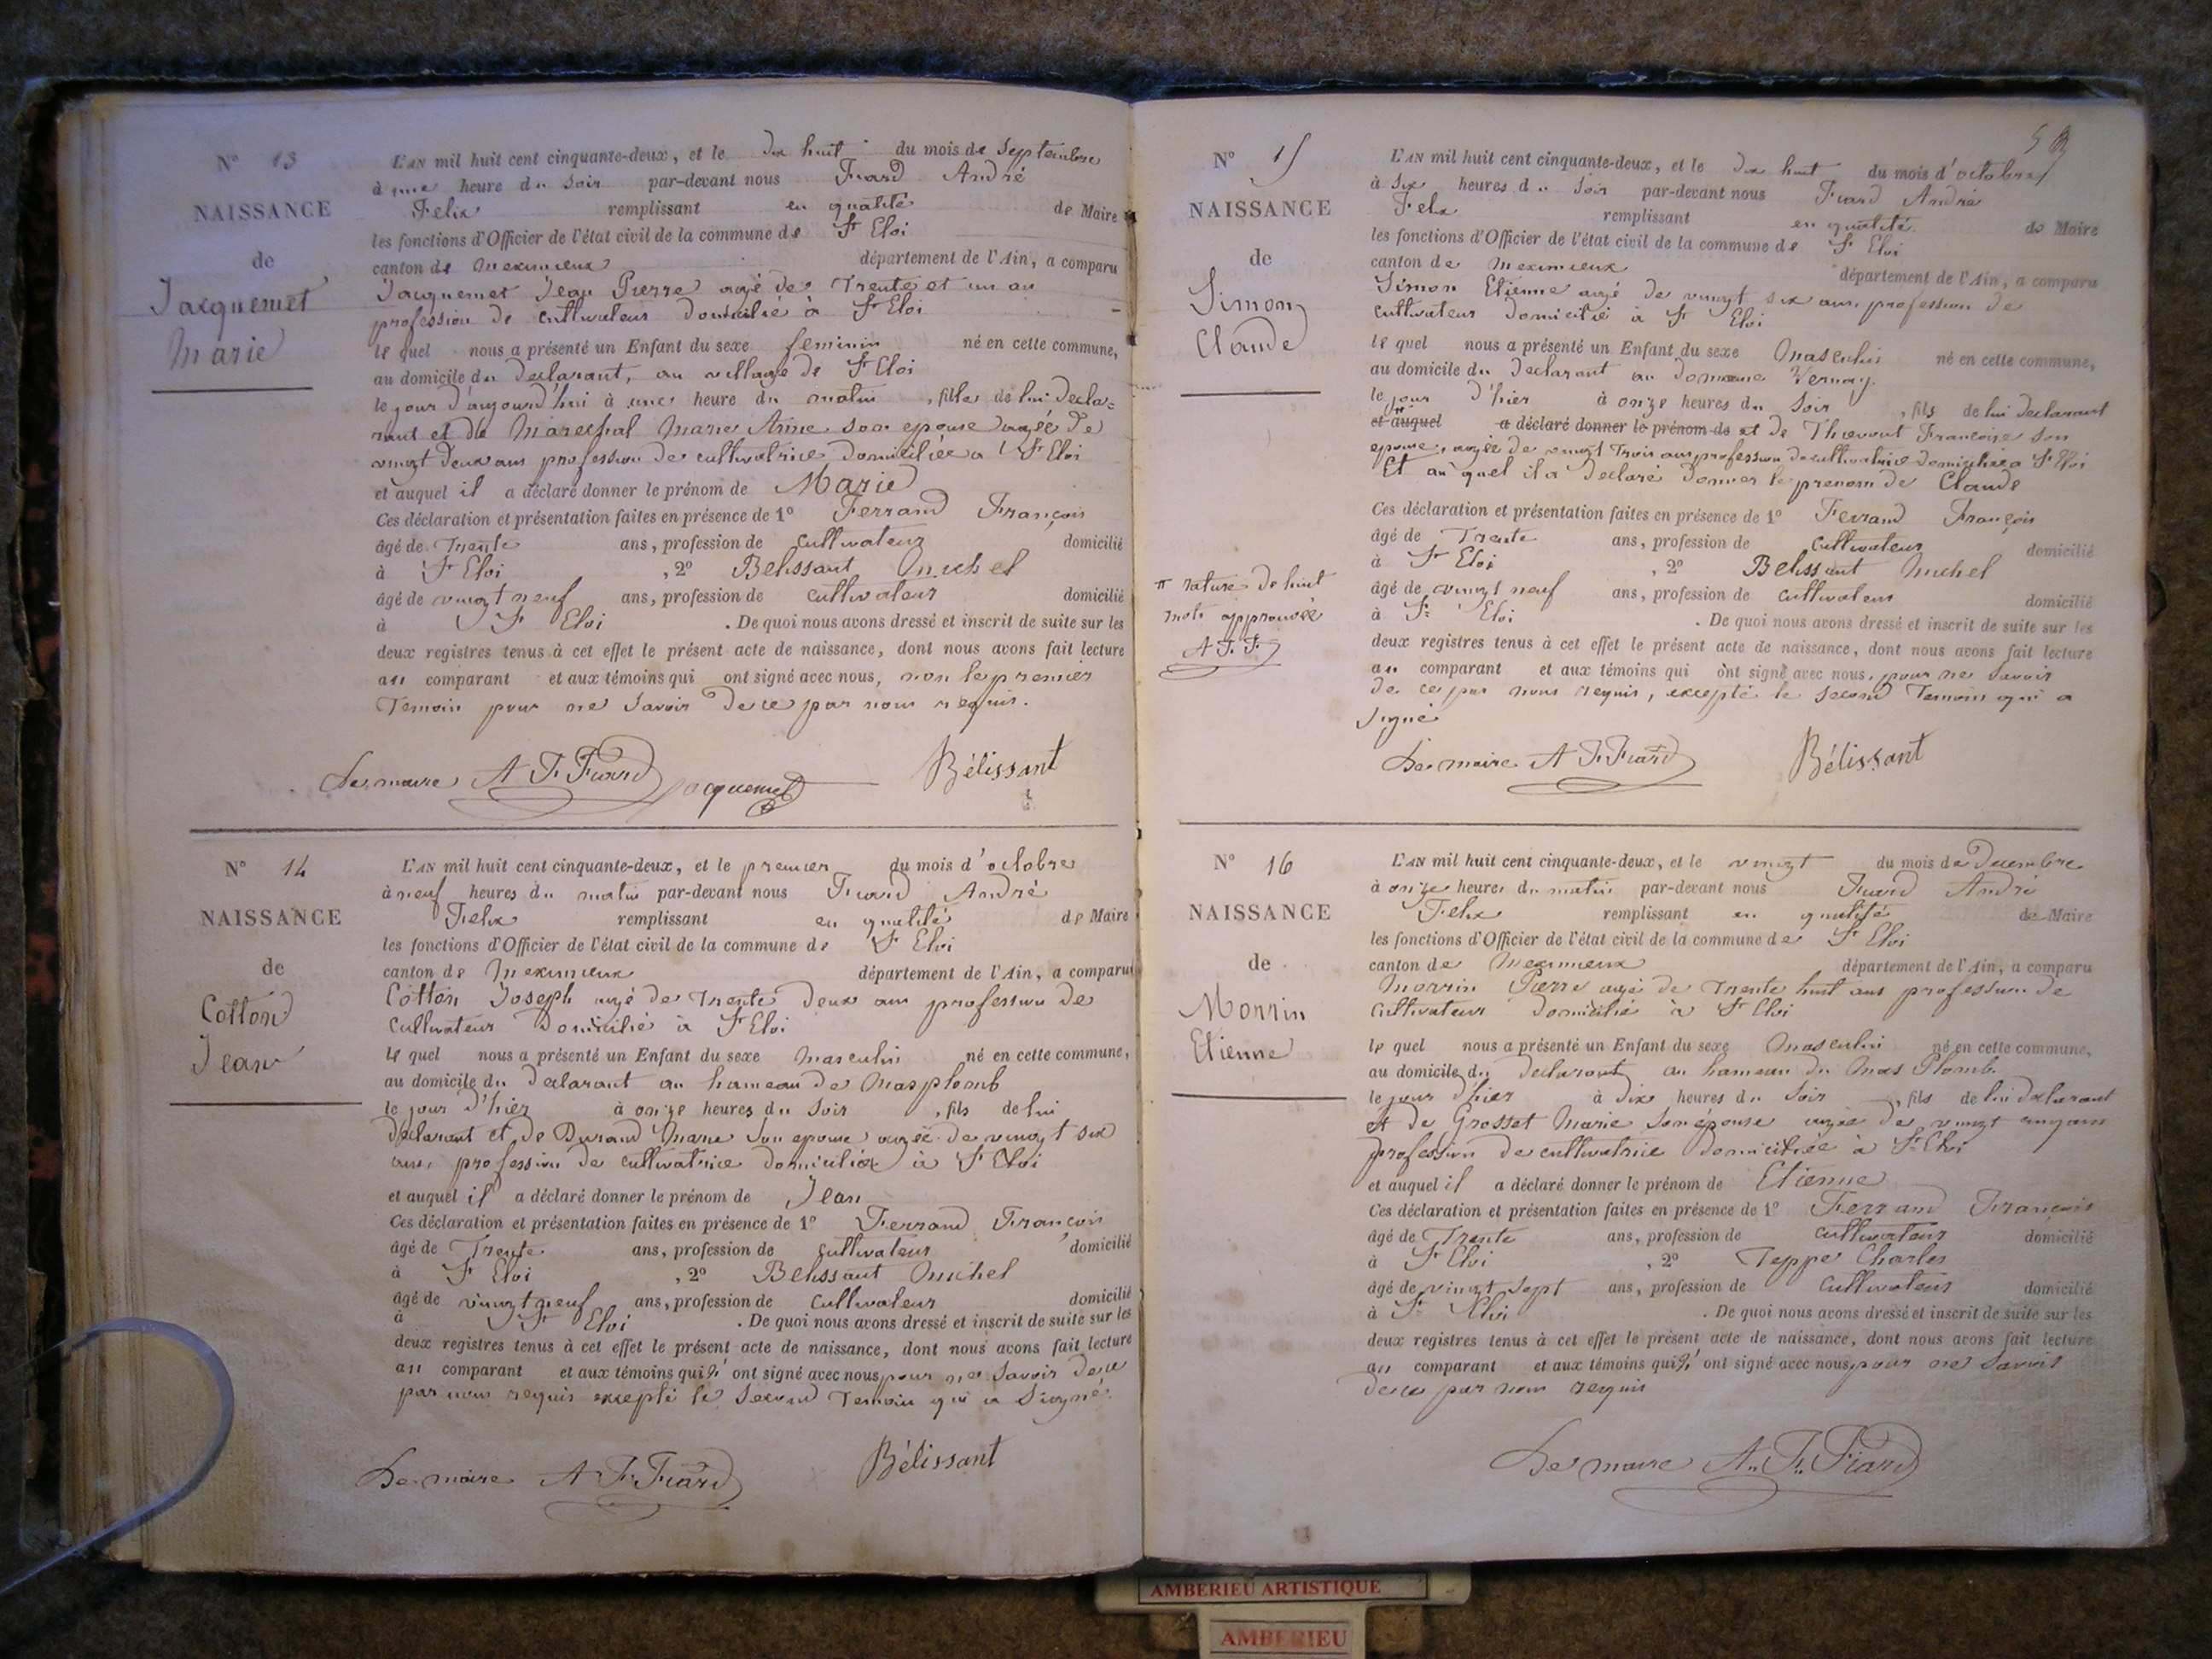 N° 13
NAISSANCE
de
Jacquemet
Marie
L'AN mil huit cent cinquante-deux, et le dix huit du mois de Septembre
à une heure du Soir par-devant nous Fiard André
Felix remplissant en qualité de Maire
les fonctions d'Officier de l'état civil de la commune de St Eloi
canton de Meximieux département de l'Ain, a comparu
Jacquemet Jean Pierre agé de Trente et un an
profession de cultivateur Domicilié à St Eloi
le quel nous a présenté un Enfant du sexe feminin né en cette commune,
au domicile du Declarant, au village de St Eloi
le jour d'aujourd'hui à une heure du matin , fille de lui decla=
rant et de Marechal Marie Anne son epouse agée de
vingt deux ans profession de cultivatrice domiciliée a St Eloi
et auquel il a déclaré donner le prénom de Marie
Ces déclaration et présentation faites en présence de 1° Ferrand François
âgé de Trente ans, profession de cultivateur domicilié
à St Eloi , 2° Belissant Michel
âgé de vingt neuf ans, profession de cultivateur domicilié
à St Eloi . De quoi nous avons dressé et inscrit de suite sur les
deux registres tenus à cet effet le présent acte de naissance, dont nous avons fait lecture
au comparant et aux témoins qui ont signé avec nous, non le premier
Temoin pour ne Savoir de ce par nous requis.
Le maire A F Fiard Jacquemet Bélissant
N° 14
NAISSANCE
de
Cotton
Jean
L'AN mil huit cent cinquante-deux, et le premier du mois d'octobre
à neuf heures du matin par-devant nous Fiard André
Felix remplissant en qualité de Maire
les fonctions d'Officier de l'état civil de la commune de St Eloi
canton de Meximieux département de l'Ain, a comparu
Cotton Joseph agé de Trente Deux ans profession de
Cultivateur Domicilié à St Eloi
le quel nous a présenté un Enfant du sexe Masculin né en cette commune,
au domicile du Declarant au hameau de Masplomb
le jour d'hier à onze heures du Soir , fils de lui
Declarant et de Durand Marie Son epouse agée de vingt six
ans, profession de cultivatrice domiciliée à St Eloi
et auquel il a déclaré donner le prénom de Jean
Ces déclaration et présentation faites en présence de 1° Ferrand François
âgé de Trente ans, profession de cultivateur domicilié
à St Eloi , 2° Belissant Michel
âgé de vingt neuf ans, profession de Cultivateur domicilié
à St Eloi . De quoi nous avons dressé et inscrit de suite sur les
deux registres tenus à cet effet le présent acte de naissance, dont nous avons fait lecture
au comparant et aux témoins qui n' ont signé avec nous, pour ne Savoir de ce
par nous requis excepté le Second Temoin qui a Signé.
Le maire A F Fiard Bélissant
N° 15
NAISSANCE
de
Simon
Claude
L'AN mil huit cent cinquante-deux, et le dix huit du mois d'octobre
à Six heures du Soir par-devant nous Fiard André
Felix remplissant en qualité de Maire
les fonctions d'Officier de l'état civil de la commune de St Eloi
canton de Meximieux département de l'Ain, a comparu
Simon Etienne agé de vingt six ans, profession de
cultivateur domicilié à St Eloi
le quel nous a présenté un Enfant du sexe Masculin né en cette commune,
au domicile du Declarant au Domaine Vernay
le jour d'hier à onze heures du Soir , fils de lui Declarant
et auquel a déclaré donner le prénom de et de Thievont Françoise son
epouse, agée de vingt Trois ans profession de cultivatrice domiciliée a St Eloi
Et au quel il a Declaré Donner le prenom de Claude
Ces déclaration et présentation faites en présence de 1° Ferrand François
âgé de Trente ans, profession de Cultivateur domicilié
à St Eloi , 2° Belissant Michel
π rature de huit
mots approuvée
A F F
âgé de vingt neuf ans, profession de cultivateur domicilié
à St Eloi . De quoi nous avons dressé et inscrit de suite sur les
deux registres tenus à cet effet le présent acte de naissance, dont nous avons fait lecture
au comparant et aux témoins qui ont signé avec nous, pour ne Savoir
de ce par nous requis, excepté le Second Temoin qui a
Signé
Le maire A F Fiard Bélissant
N° 16
NAISSANCE
de
Morrin
Etienne
L'AN mil huit cent cinquante-deux, et le vingt du mois de Decembre
à onze heures du matin par-devant nous Fiard André
Felix remplissant en qualité de Maire
les fonctions d'Officier de l'état civil de la commune de St Eloi
canton de Meximieux département de l'Ain, a comparu
Morrin Pierre agé de Trente huit ans profession de
Cultivateur Domicilié à St Eloi
le quel nous a présenté un Enfant du sexe Masculin né en cette commune,
au domicile du Declarant au hameau du Mas Plomb
le jour d'hier à dix heures du Soir , fils de lui declarant
et de Grosset Marie Son épouse agée de vingt cinq ans
profession de cultivatrice Domiciliée à St Eloi
et auquel il a déclaré donner le prénom de Etienne
Ces déclaration et présentation faites en présence de 1° Ferrand François
âgé de Trente ans, profession de cultivateur domicilié
à St Eloi , 2° Teppe Charles
âgé de vingt Sept ans, profession de Cultivateur domicilié
à St Eloi . De quoi nous avons dressé et inscrit de suite sur les
deux registres tenus à cet effet le présent acte de naissance, dont nous avons fait lecture
au comparant et aux témoins qui n' ont signé avec nous, pour ne Savoir
de ce par nous requis
Le maire A. F. Fiard
AMBERIEU ARTISTIQUE
AMBERIEU